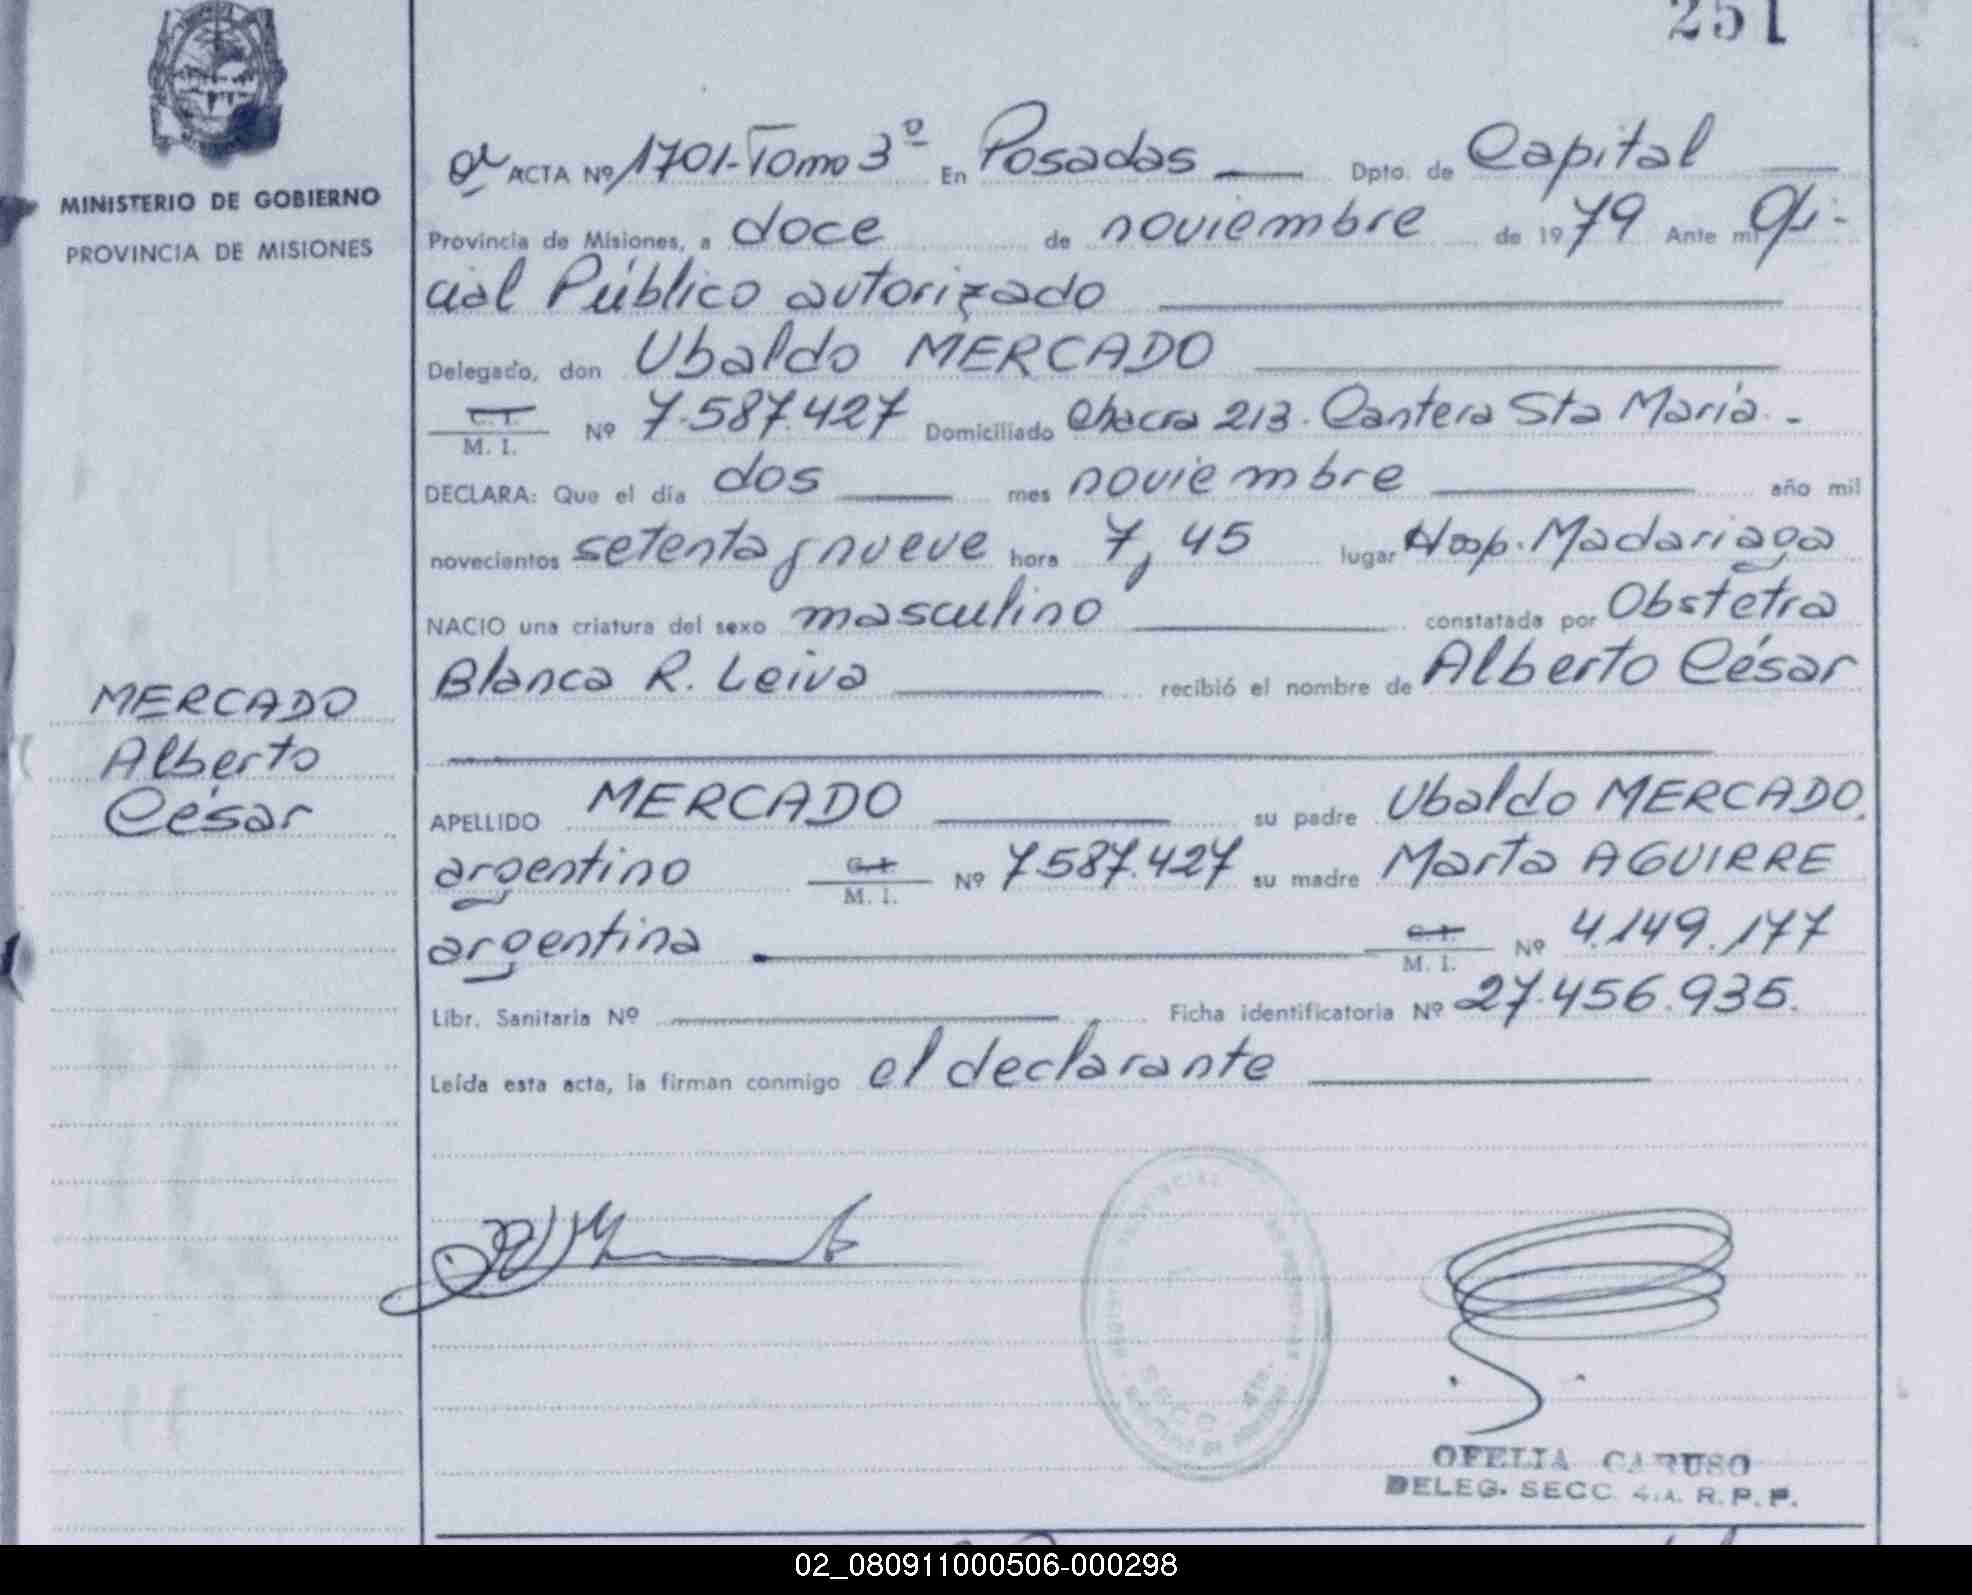 251
MINISTERIO DE GOBIERNO
PROVINCIA DE MISIONES
ACTA Nº 1701-Tomo 3º En Posadas Dpto. de Capital
Provincia de Misiones, a doce de noviembre de 1979 Ante mi Ofi-
cial Público autorizado
Delegado, don Ubaldo MERCADO
C. I.
M. I. Nº 7.587.427 Domiciliado Chacra 213. Cantera Sta María.-
DECLARA: Que el día dos mes noviembre año mil
novecientos setenta y nueve hora 7,45 lugar Hosp. Madariaga
NACIO una criatura del sexo masculino constatada por Obstetra
Blanca R. Leiva recibió el nombre de Alberto César
MERCADO
Alberto
César
APELLIDO MERCADO su padre Ubaldo MERCADO,
argentino C.I. M. I. Nº 7.587.427 su madre Marta AGUIRRE
argentina C.I. M. I. Nº 4.149.177
Libr. Sanitaria Nº Ficha identificatoria Nº 27.456.935.
Leída esta acta, la firman conmigo el declarante
SECC. 4ta.
OFELIA CARUSO
DELEG. SECC. 4.A. R.P.P.
02_080911000506-000298